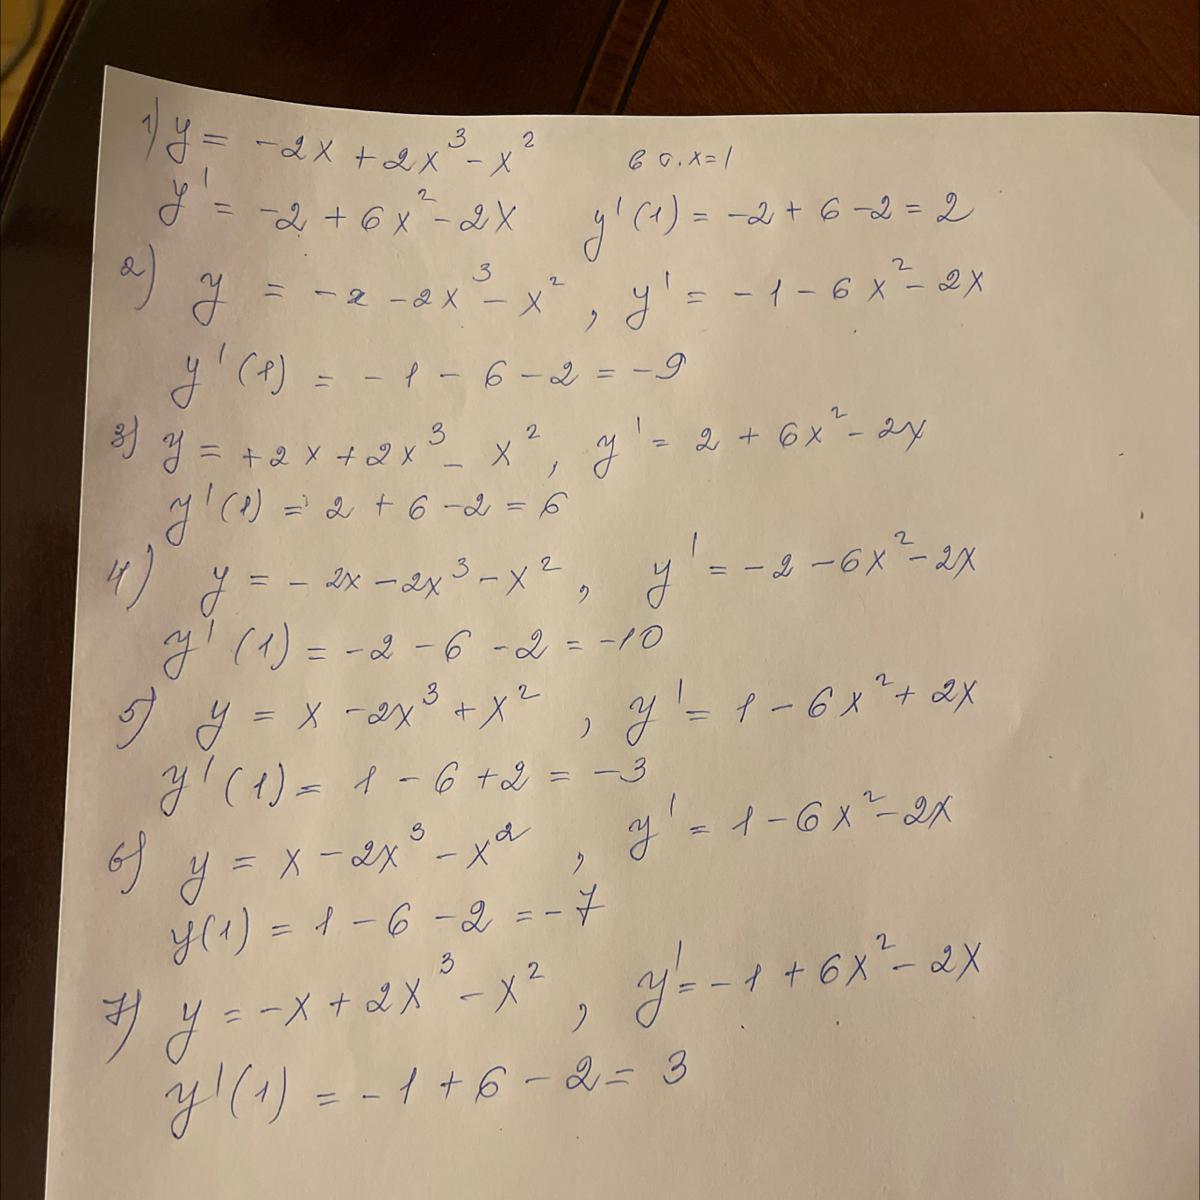 1) y = -2x + 2x³ - x² в т. x=1
y' = -2 + 6x² - 2x y'(1) = -2 + 6 - 2 = 2
2) y = -x - 2x³ - x², y' = -1 - 6x² - 2x
y'(1) = -1 - 6 - 2 = -9
3) y = +2x + 2x³ - x², y' = 2 + 6x² - 2x
y'(1) = 2 + 6 - 2 = 6
4) y = -2x - 2x³ - x², y' = -2 - 6x² - 2x
y'(1) = -2 - 6 - 2 = -10
5) y = x - 2x³ + x², y' = 1 - 6x² + 2x
y'(1) = 1 - 6 + 2 = -3
6) y = x - 2x³ - x², y' = 1 - 6x² - 2x
y(1) = 1 - 6 - 2 = -7
7) y = -x + 2x³ - x², y' = -1 + 6x² - 2x
y'(1) = -1 + 6 - 2 = 3